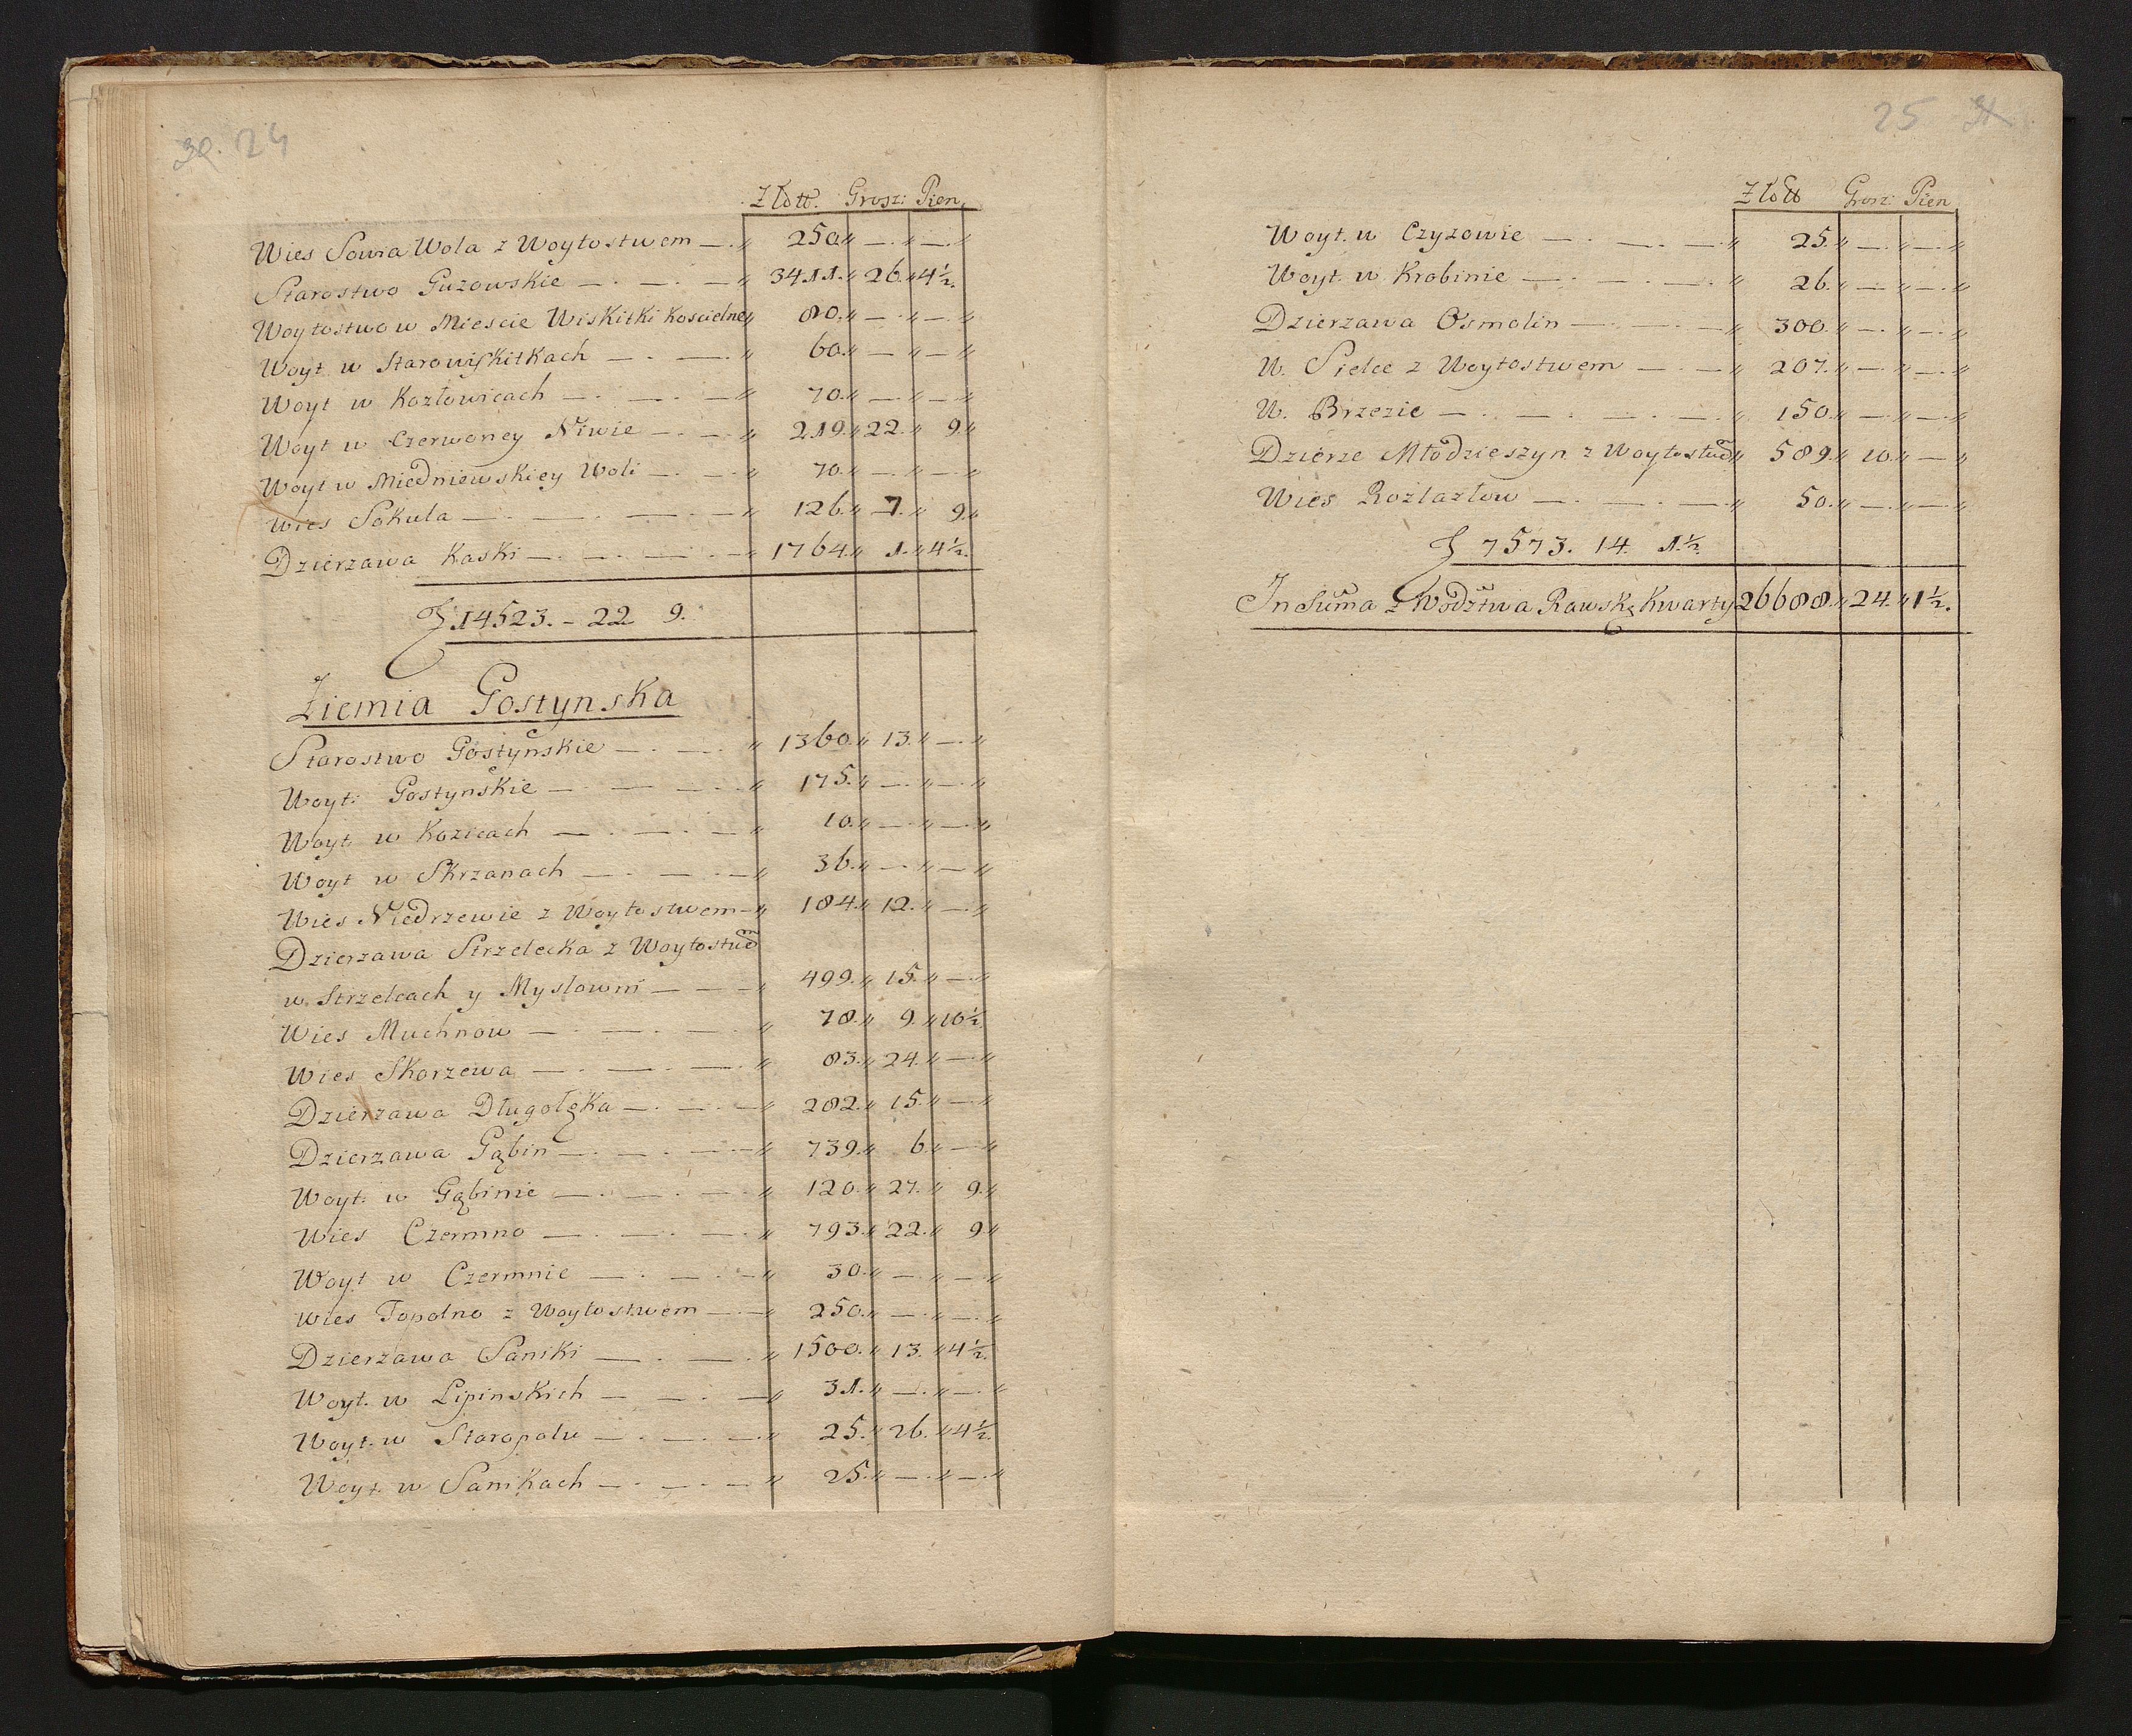 30. 24
Złott. Grosz: Pien,
Wies Sowia Wola z Woytostwem — " 250. " — . " — . "
Starostwo Guzowskie — . — . — " 3411. " 26. " 4½.
Woytostwo w Miescie Wiskitki Koscielne " 80. " — . " — . "
Woyt w Starowiskitkach — . — . " 60. " — " — "
Woyt w Kozłowicach — . — . — " 70. " — . " — "
Woyt w Czerwoney Niwie — . — . " 219. " 22. " 9. "
Woyt w Miedniewskiey Woli — . — . " 70. " — . " — . "
Wies Sokula — . — . — . — " 126. " 7. " 9. "
Dzierzawa Kaski — . — . — . — " 1764. " 1. " 4½.
14523. - 22 9.
Ziemia Gostynska
Starostwo Gostynskie — . — . " 1360. " 13. " — . "
Woyt: Gostynskie — . — — . " 175. " — . " — . "
Woyt w Kozicach — . — . — " 10. " — . " — . "
Woyt w Skrzanach — . — . — " 36. " — . " — "
Wies Niedrzewie z Woytostwem — " 184. " 12. " — . "
Dzierzawa Strzelecka z Woytostwem
w Strzelcach y Myslowni — — — " 499. " 15. " — . "
Wies Muchnow — . — . — " 78. " 9. " 10½
Wies Skorzewa — . — . — . " 83. " 24. " — "
Dzierzawa Długołęka — . — . — " 282. " 15. " — "
Dzierzawa Gąbin — . — . — " 739. " 6. " — "
Woyt. w Gąbinie — . — . — " 120. " 27. " 9. "
Wies Czermno — . — . — . " 793. " 22. " 9. "
Woyt w Czermnie — . — . — " 30. " — . " — "
Wies Topolno z Woytostwem — . — " 250. " — . " — . "
Dzierzawa Saniki — . — . " 1500. " 13. " 4½.
Woyt. w Lipinskich — — . — " 31. " — . " — . "
Woyt. w Staropolu — . — . — " 25. " 26. " 4½.
Woyt. w Sanikach — . — . — " 25. " — . " — . "
25
Złott Grosz: Pien
Woyt. w Czyzowie — . — . — " 25. " — . " — . "
Woyt. w Krobinie — . — . — . " 26. " — " — . "
Dzierzawa Osmolin — . — . — " 300. " — . " — . "
W. Sielce z Woytostwem — . — " 207. " — . " — . "
W. Brzezie — . — . — . — . " 150. " — . " — . "
Dzierze Młodzieszyn z Woytostwem " 589. " 10. " — "
Wies Rozlazłow — . — . — " 50. " — . " — . "
7573. 14. 1½.
In Suma z Wodztwa Rawskę Kwarty 26688. " 24. " 1½.